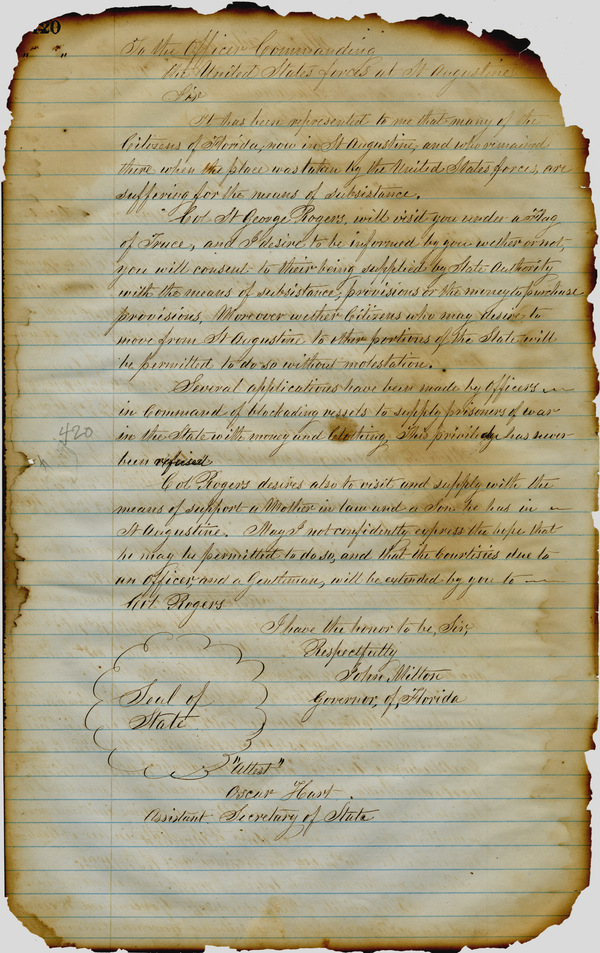 20
" " "
To the Officer Commanding
the United States forces at St Augustine
Sir
It has been represented to me that many of the
Citizens of Florida, now in St Augustine, and who remained
there when the place was taken by the United States forces, are
suffering for the means of subsistance.
Col St George Rogers, will visit you under a Flag
of Truce, and I desire to be informed by you wether or not,
you will consent to their being supplied by State Authority
with the means of subsistance, provisions or the money to purchase
provisions. Moreover wether Citizens who may desire to
move from St Augustine to other portions of the State will
be permitted to do so without molestation.
Several applications have been made by Officers
in Command of blockading vessels to supply prisoners of war
in the State with money and Clothing. This priviledge has never
been refused
Col. Rogers desires also to visit and supply with the
means of support a Mother in law and a Son he has in
St Augustine. May I not confidently express the hope that
he may be permitted to do so, and that the Courtisies due to
an Officer and a Gentleman, will be extended by you to
Col. Rogers
I have the honor to be, Sir,
Respectfully
John Milton
Governor, of, Florida
Seal of
State
"Attest"
Oscar Hart
Assistant Secretary of State
420